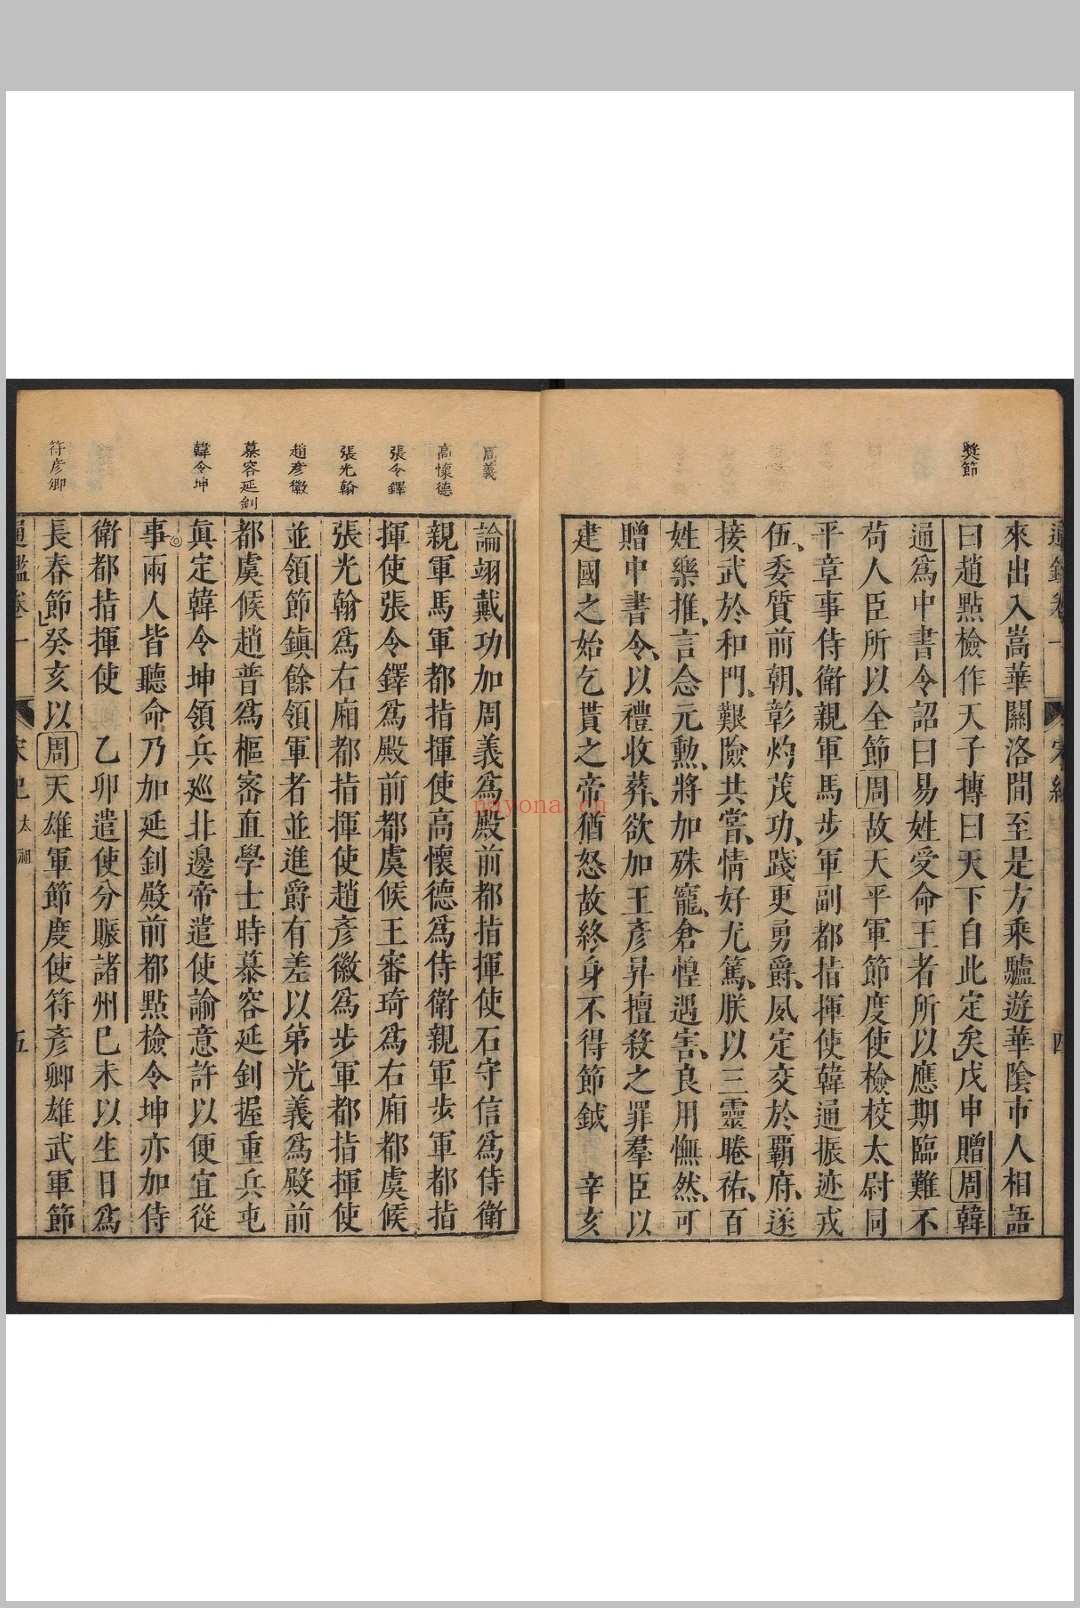 獎節
來出入嵩華關洛間至是方乘驢遊華陰市人相語
曰趙點檢作天子摶曰天下自此定矣戊申贈周韓
通爲中書令詔曰易姓受命王者所以應期臨難不
苟人臣所以全節周故天平軍節度使檢校太尉同
平章事侍衛親軍馬步軍副都指揮使韓通振迹戎
伍委質前朝彰灼茂功踐更勇爵夙定交於覇府遂
接武於和門艱險共嘗情好尤篤朕以三靈睠祐百
姓樂推言念元勲將加殊寵倉惶遇害良用憮然可
贈中書令以禮收葬欲加王彥昇擅殺之罪羣臣以
建國之始乞貰之帝猶怒故終身不得節鉞 辛亥
周義
高懷德
張令鐸
張光翰
趙彥徽
慕容延釗
韓令坤
符彥卿
論翊戴功加周義爲殿前都指揮使石守信爲侍衛
親軍馬軍都指揮使高懷德爲侍衛親軍步軍都指
揮使張令鐸爲殿前都虞候王審琦爲右廂都虞候
張光翰爲右廂都指揮使趙彥徽爲步軍都指揮使
並領節鎮餘領軍者並進爵有差以弟光義爲殿前
都虞候趙普爲樞密直學士時慕容延釗握重兵屯
眞定韓令坤領兵廵北邊帝遣使諭意許以便宜從
事兩人皆聽命乃加延釗殿前都點檢令坤亦加侍
衛都指揮使 乙卯遣使分賑諸州己未以生日爲
長春節癸亥以周天雄軍節度使符彥卿雄武軍節
nayona.cn